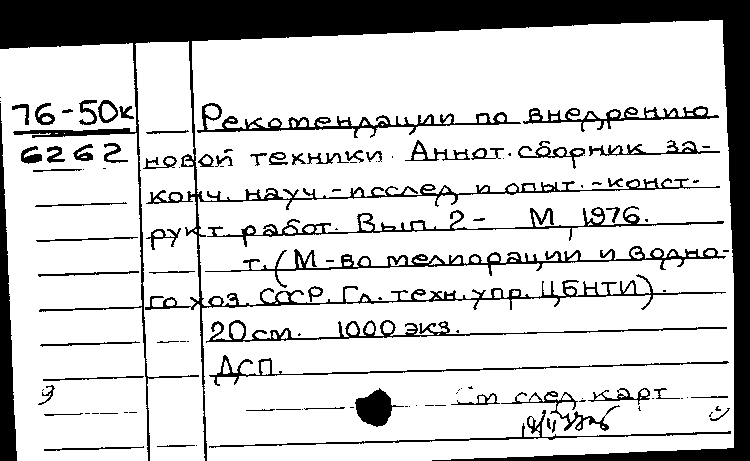 76-50к
6262
Рекомендации по внедрению
новой техники. Аннот. сборник за-
конч. науч.-исслед и опыт.-конст-
рукт. работ. Вып. 2 - М, 1976.
т. (М-во мелиорации и водно-
го хоз. СССР. Гл. техн. упр. ЦБНТИ).
20 см. 1000 экз.
ДСП.
См след карт